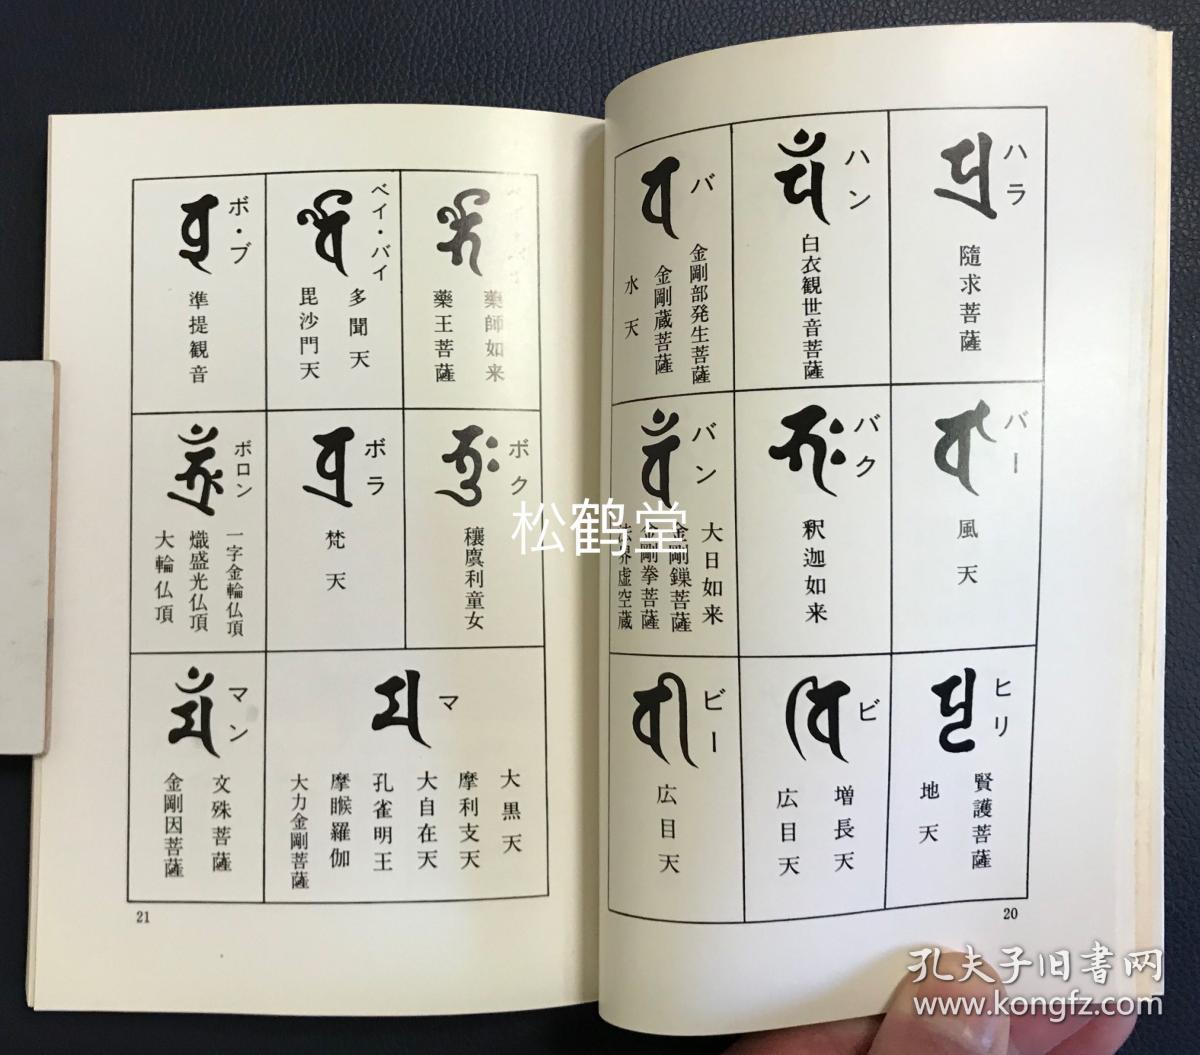 ハラ
隨求菩薩
ハン
白衣観世音菩薩
バ
金剛部発生菩薩
金剛蔵菩薩
水天
バー
風天
バク
釈迦如来
バン
大日如来
金剛鏁菩薩
金剛拳菩薩
界虚空蔵
ヒリ
賢護菩薩
地天
ビ
増長天
広目天
ビー
広目天
20
薬師如来
藥王菩薩
ベイ・バイ
多聞天
毘沙門天
ボ・ブ
準提観音
ボク
穰麌利童女
ボラ
梵天
ボロン
一字金輪仏頂
熾盛光仏頂
大輪仏頂
マ
大黒天
摩利支天
大自在天
孔雀明王
摩睺羅伽
大力金剛菩薩
マン
文殊菩薩
金剛因菩薩
21
松鹤堂
孔夫子旧書网
www.kongfz.com